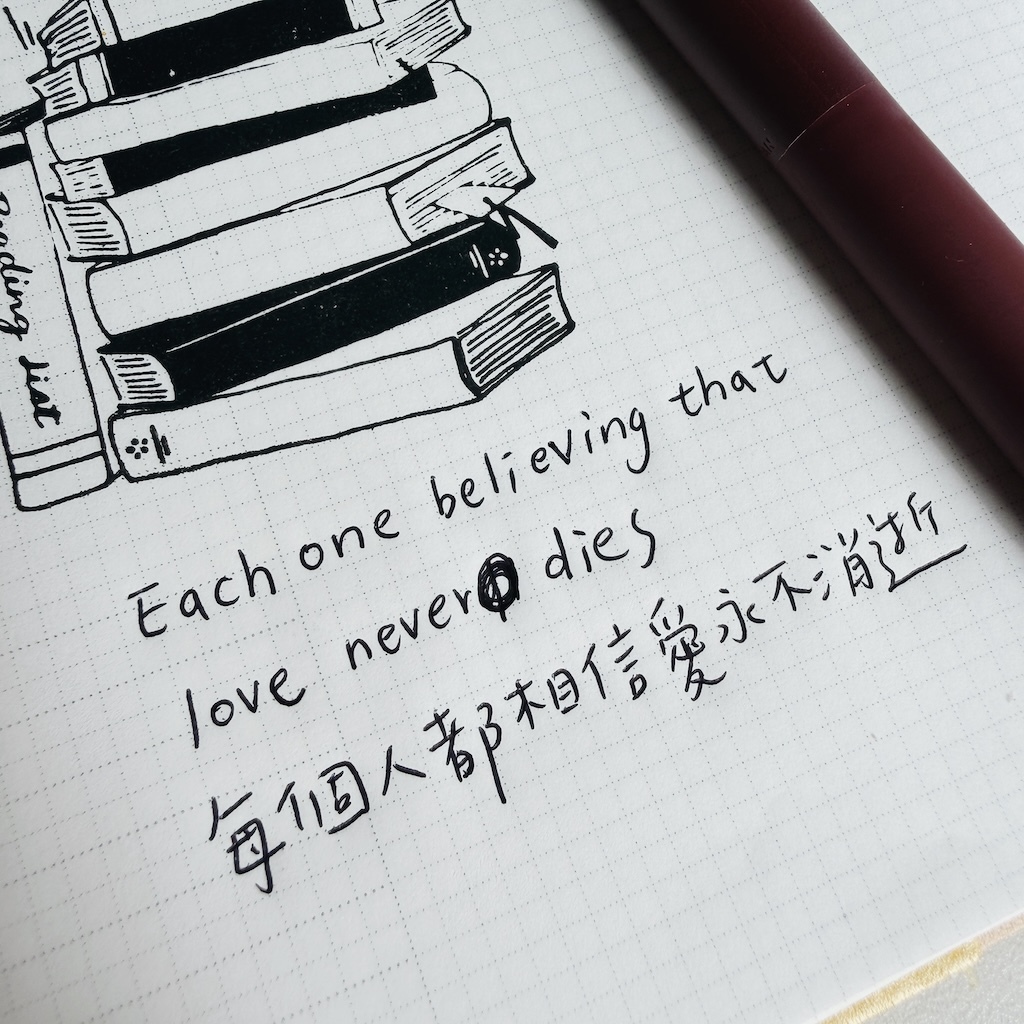 Reading list
Each one believing that
love never dies
每個人都相信愛永不消逝